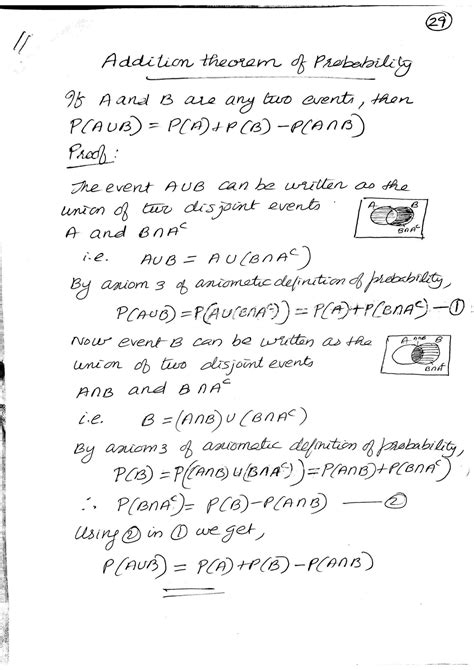 29
11
Addition theorem of Probability
If A and B are any two events, then
P(A∪B) = P(A)+P(B) −P(A∩B)
Proof:
The event A∪B can be written as the
union of two disjoint events
A B
B∩Aᶜ
A and B∩Aᶜ
i.e. A∪B = A∪(B∩Aᶜ)
By axiom 3 of axiometic definition of probability,
P(A∪B)=P(A∪(B∩Aᶜ)) = P(A)+P(B∩Aᶜ) —①
Now event B can be written as the
union of two disjoint events
A A∩B B
B∩Aᶜ
A∩B and B∩Aᶜ
i.e. B = (A∩B)∪(B∩Aᶜ)
By axiom 3 of axiometic definition of probability,
P(B) = P((A∩B)∪(B∩Aᶜ))=P(A∩B)+P(B∩Aᶜ)
∴ P(B∩Aᶜ) = P(B)−P(A∩B) —②
Using ② in ① we get,
P(A∪B) = P(A)+P(B)−P(A∩B)